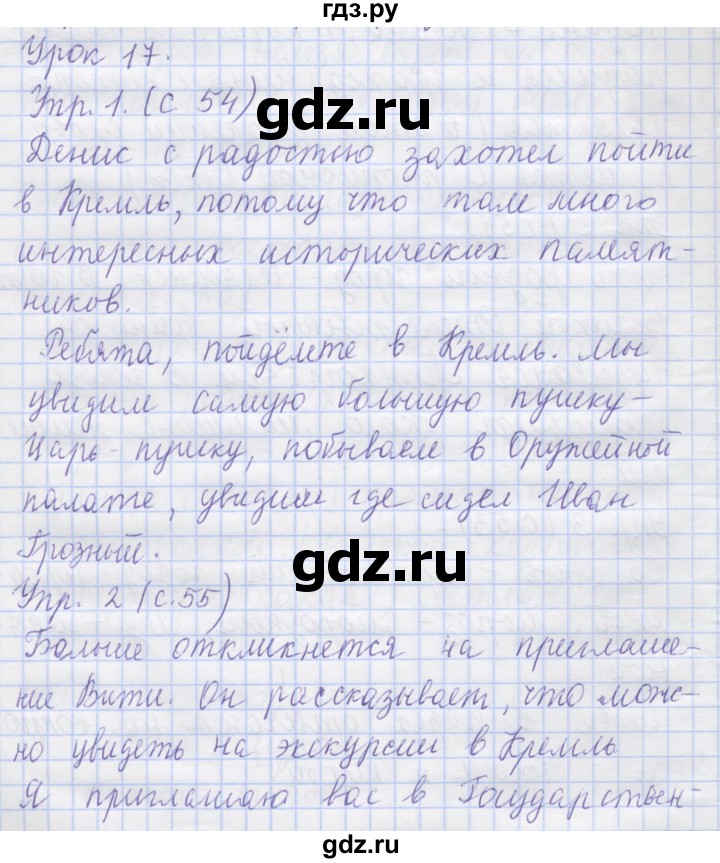 гдз.ру
Урок 17.
Упр. 1. (с 54)
gdz.ru
Денис с радостью захотел пойти
в Кремль, потому что там много
интересных исторических памят-
ников.
Ребята, пойдёмте в Кремль. Мы
увидим самую большую пушку-
Царь-пушку, побываем в Оружейной
палате, увидим где сидел Иван
Грозный.
gdz.ru
Упр. 2 (с.55)
Больше откликнется на приглаше-
ние Вити. Он рассказывает, что мож-
но увидеть на экскурсии в Кремль
Я приглашаю вас в Государствен-
gdz.ru